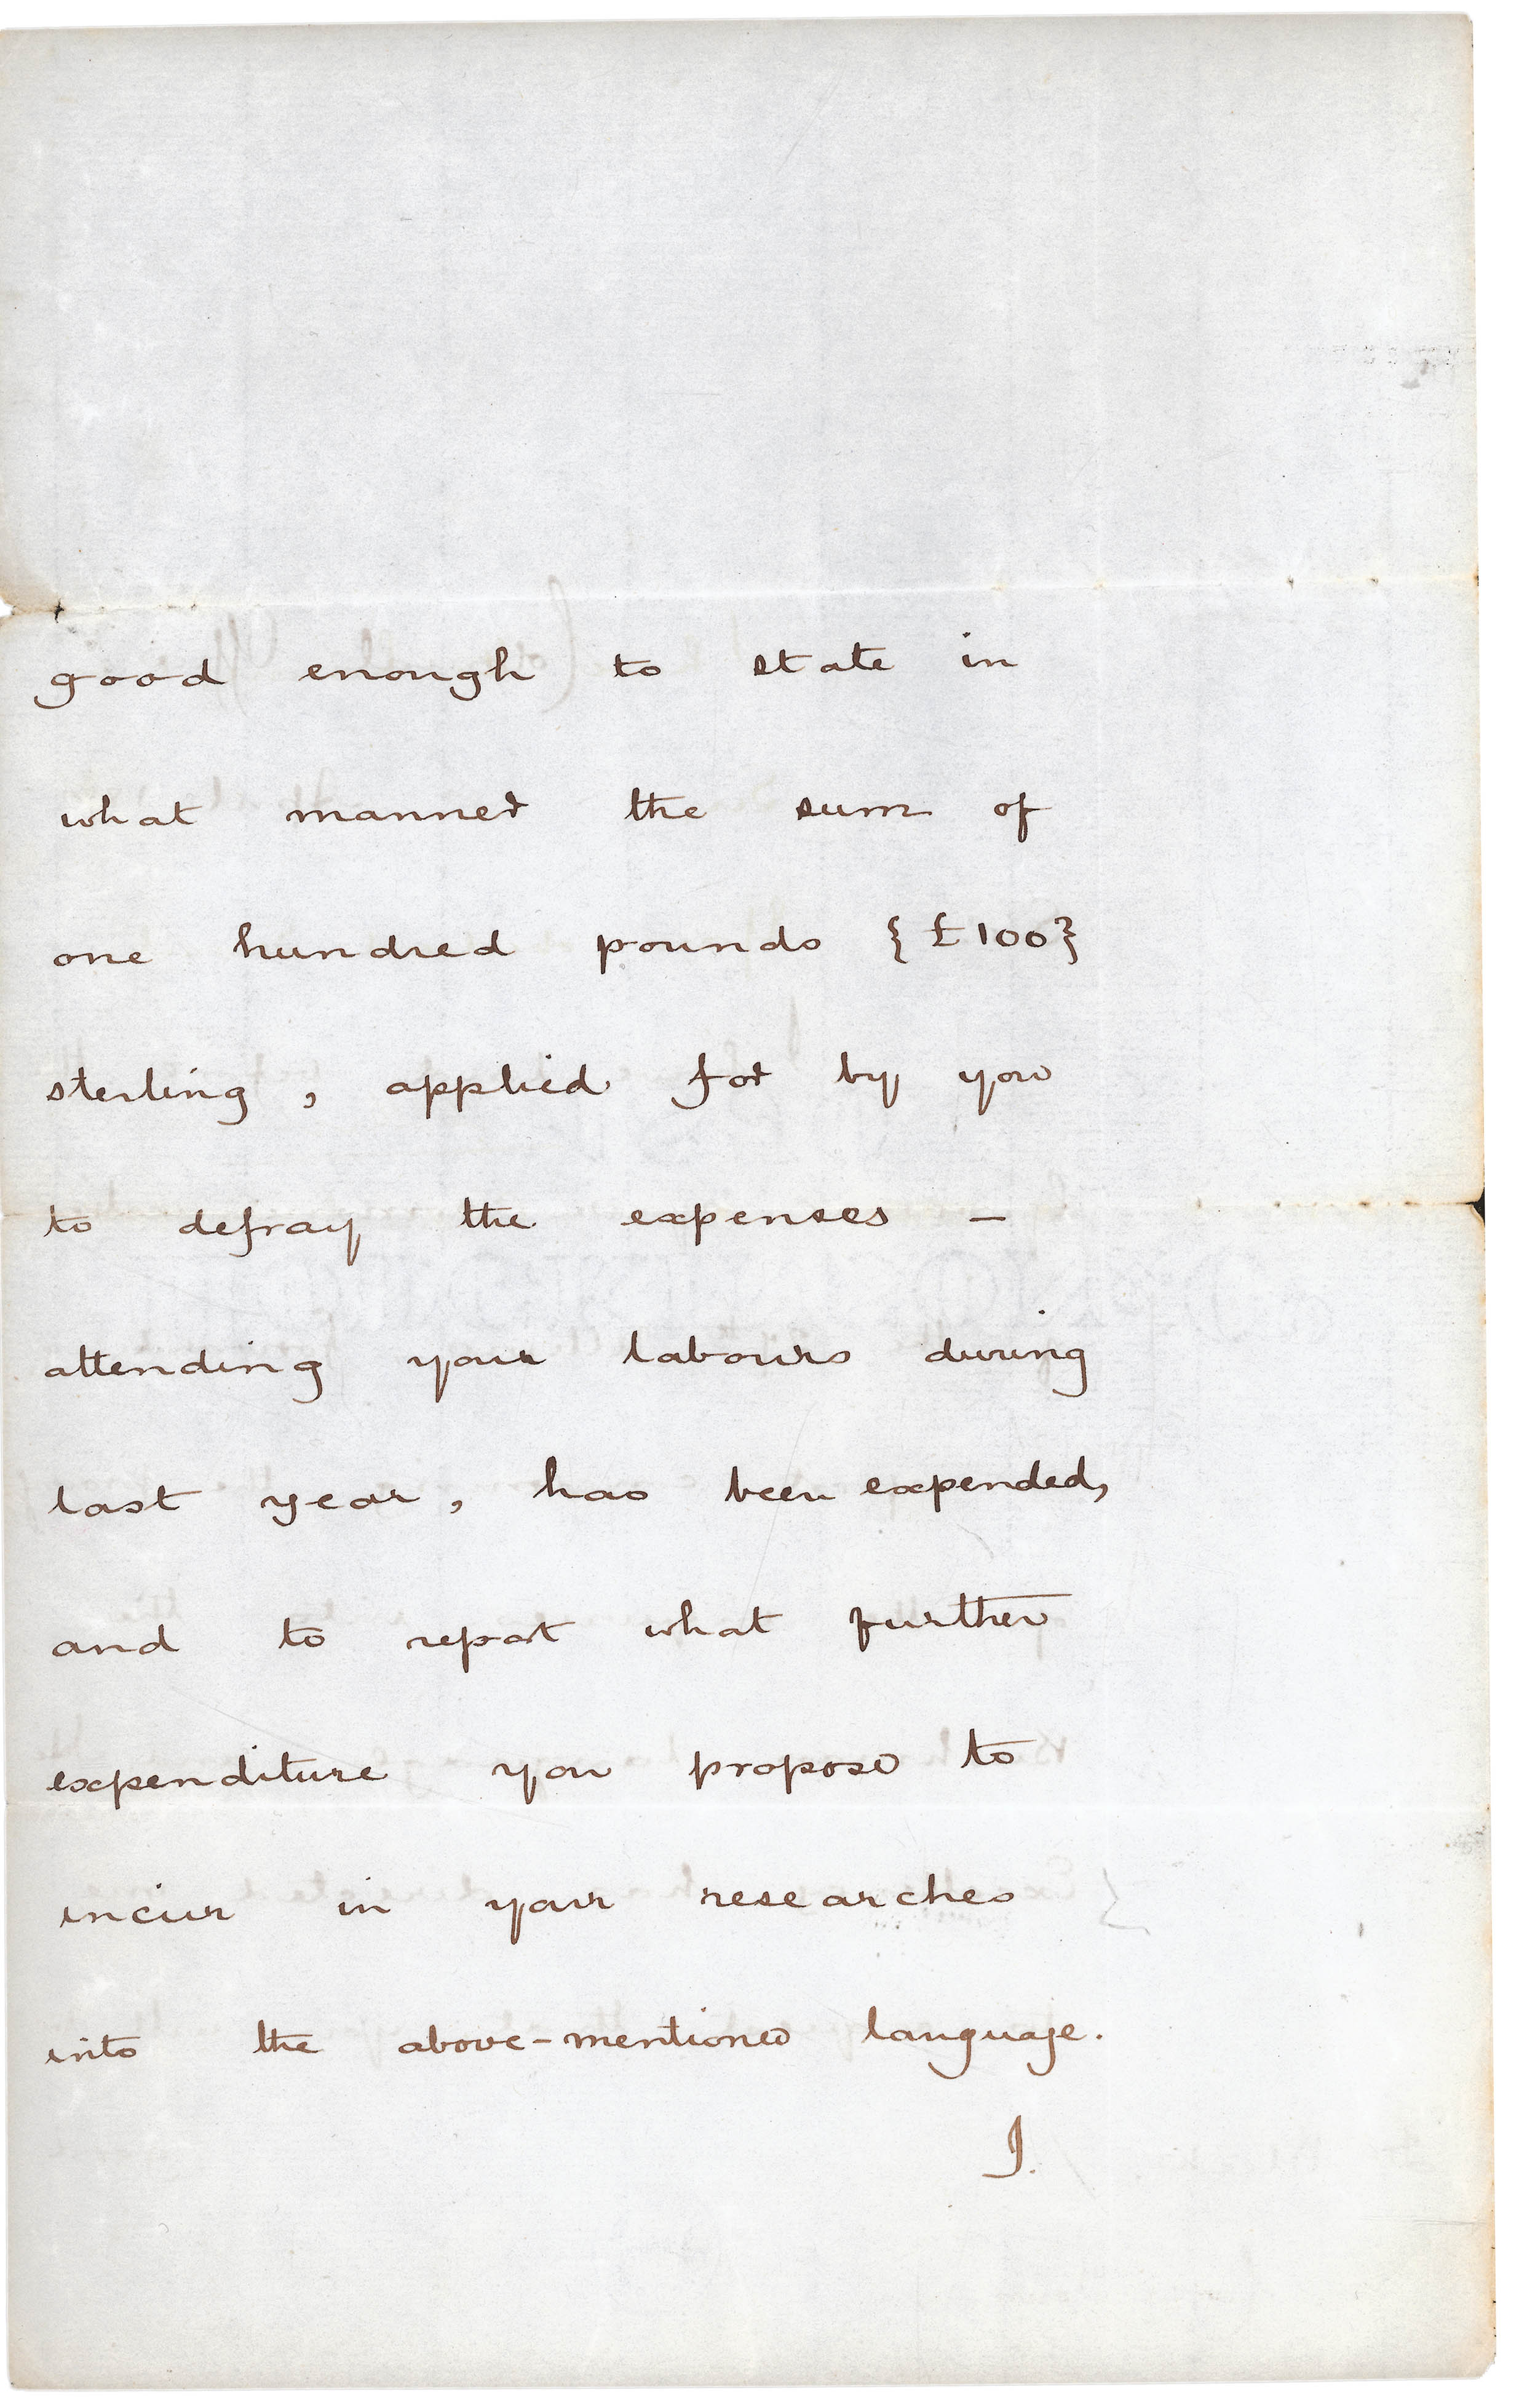 good enough to state in
what manner the sum of
one hundred pounds {£100}
sterling, applied for by you
to defray the expenses —
attending your labours during
last year, has been expended,
and to report what further
expenditure you propose to
incur in your researches
into the above-mentioned language.
I.